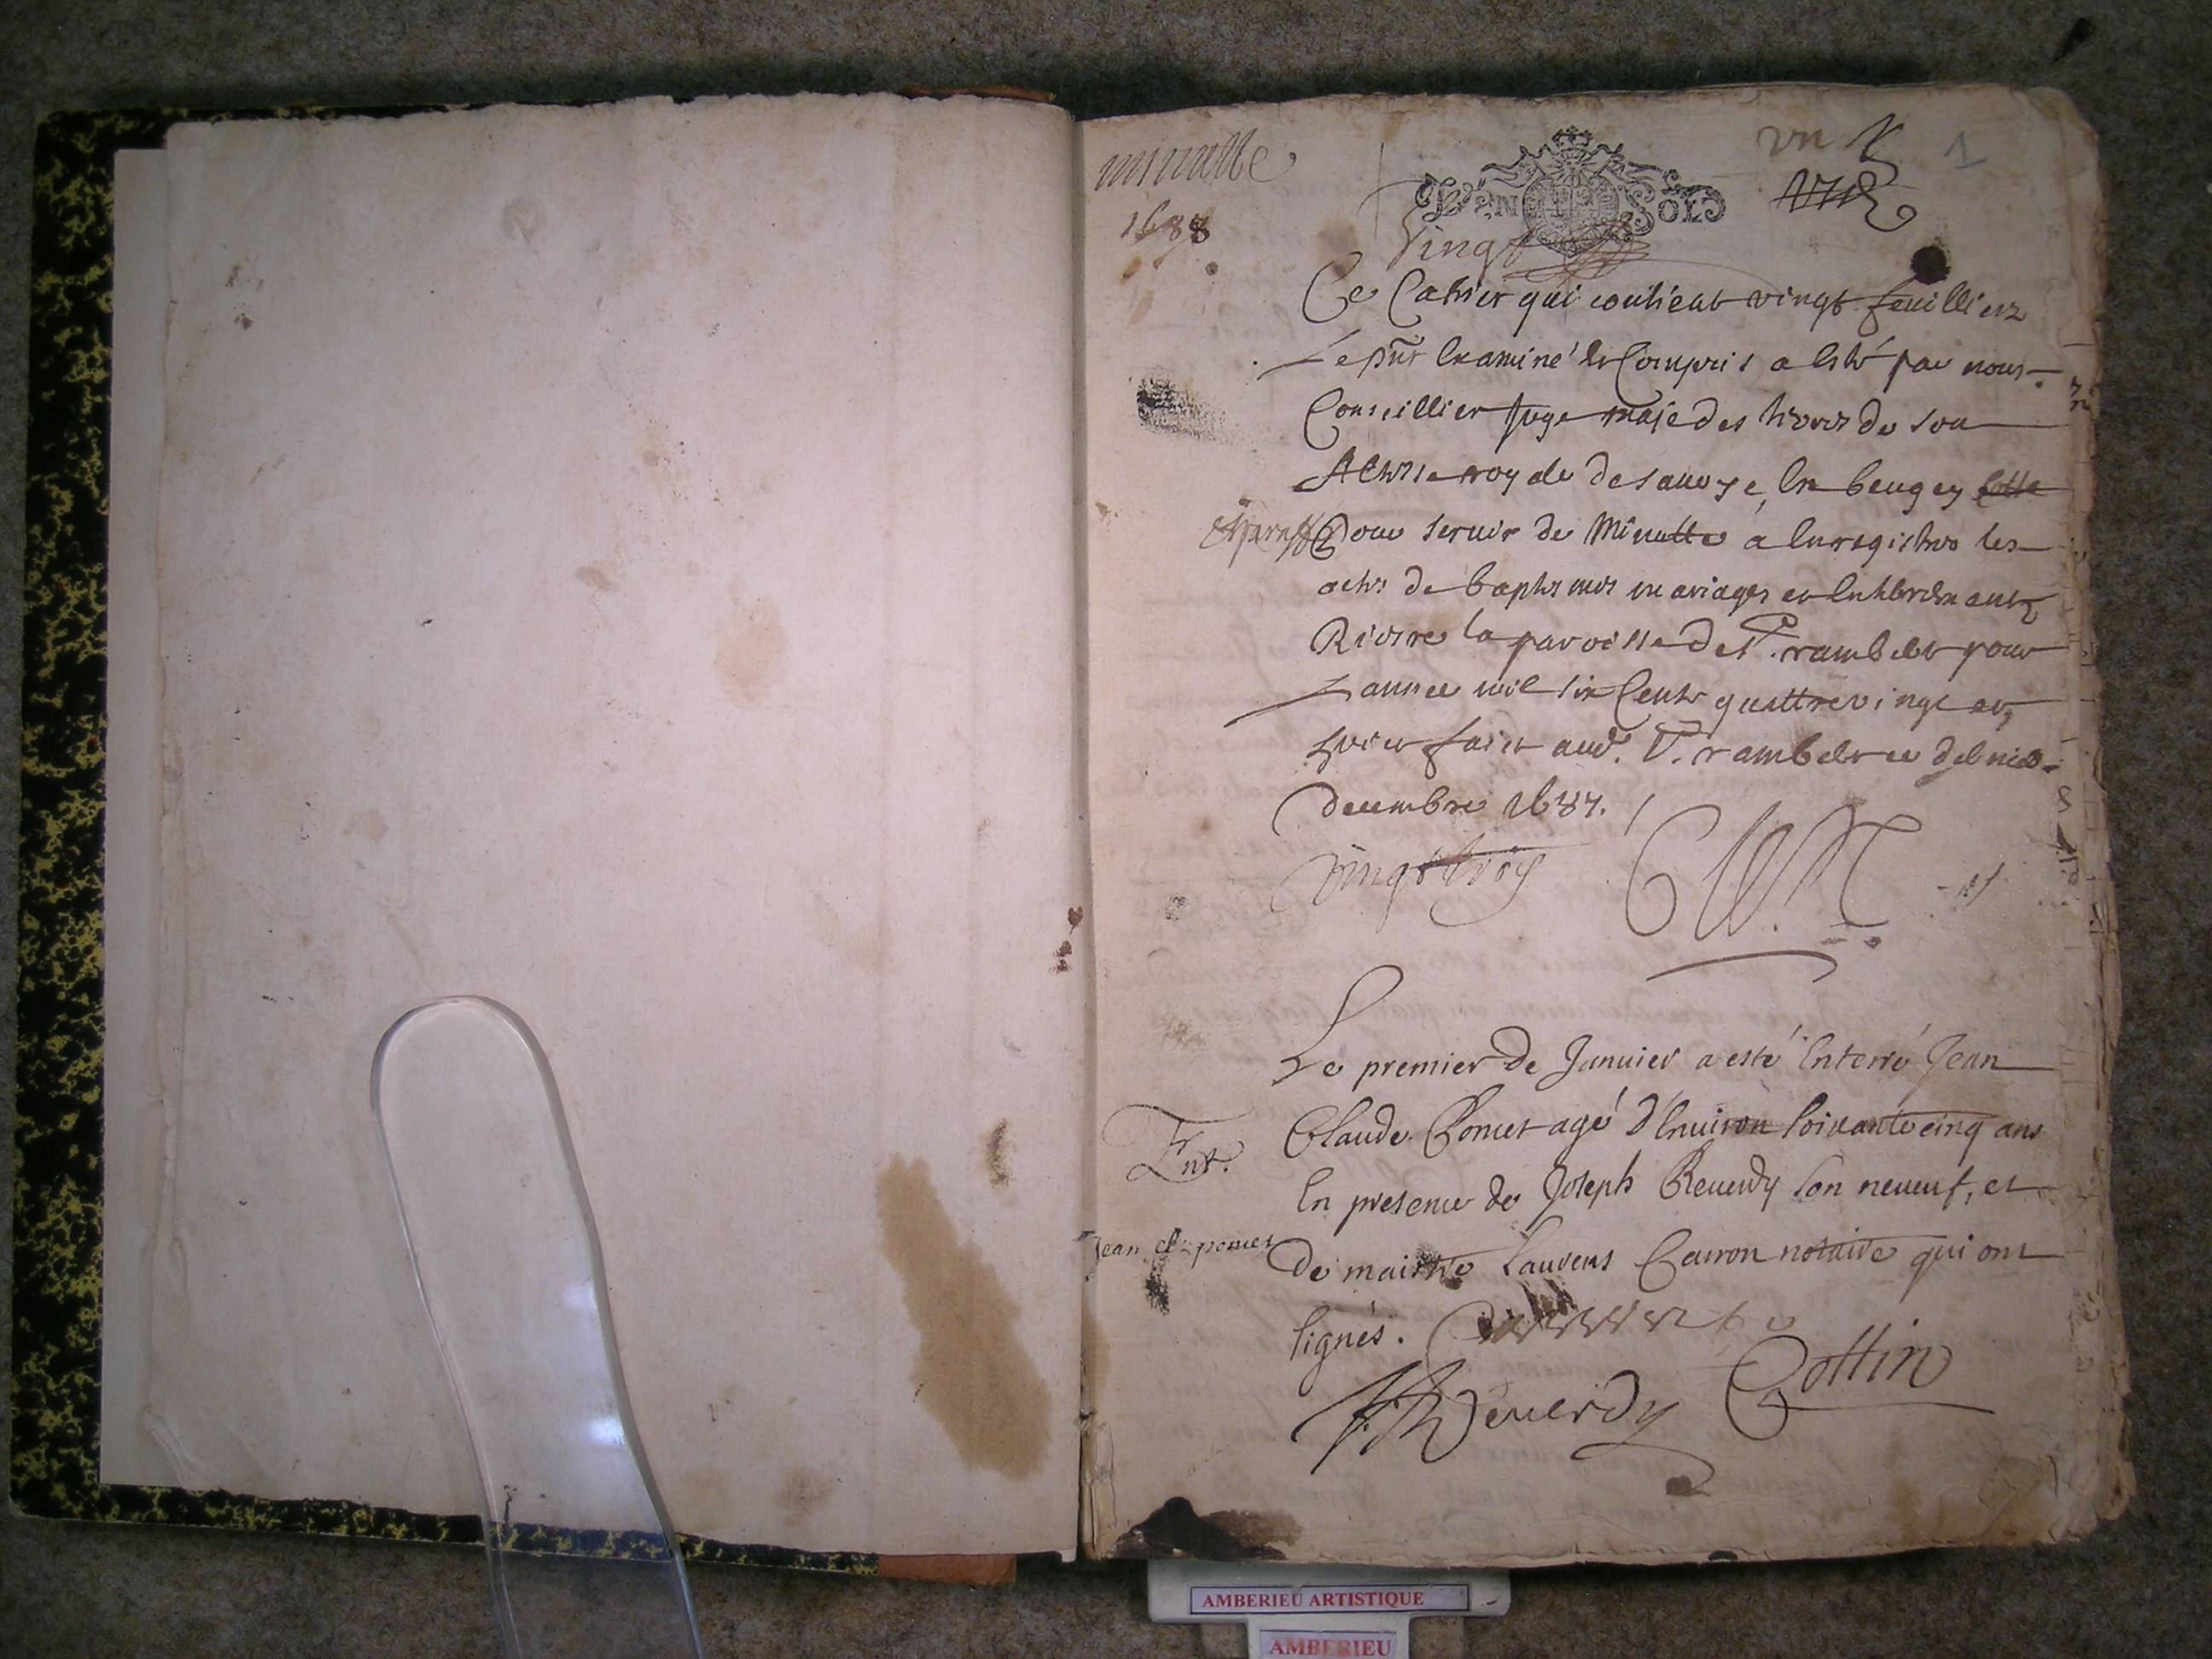 minutte
1688
un
1
SOLS
Vingt
Ce Cahier qui contient vingt feuillietz
Le pnt Examiné et Compris a esté par nous
Conseillier Juge maje des terres de son
Altesse royale de savoye, En beugey cotté
et paraffé
Pour servir de Minutte a Enregistrer les
actes de baptesmes mariages et Enterremantz
Riere la paroisse de St. rambert pour
L'annee mil six Cents quattrevingt et
huict faict aud. St. rambert ce
decembre 1687.
vingt trois
Le premier de Janvier a esté Enterré Jean
Claude Pomet agé d'Environ soixante cinq ans
En presence de Joseph Reverdy son neveuf, et
de maistre Laurens Carron notaire qui ont
signés.
Ent.
Jean cl. pomet
J. Reverdy
Cottin
AMBERIEU ARTISTIQUE
AMBERIEU